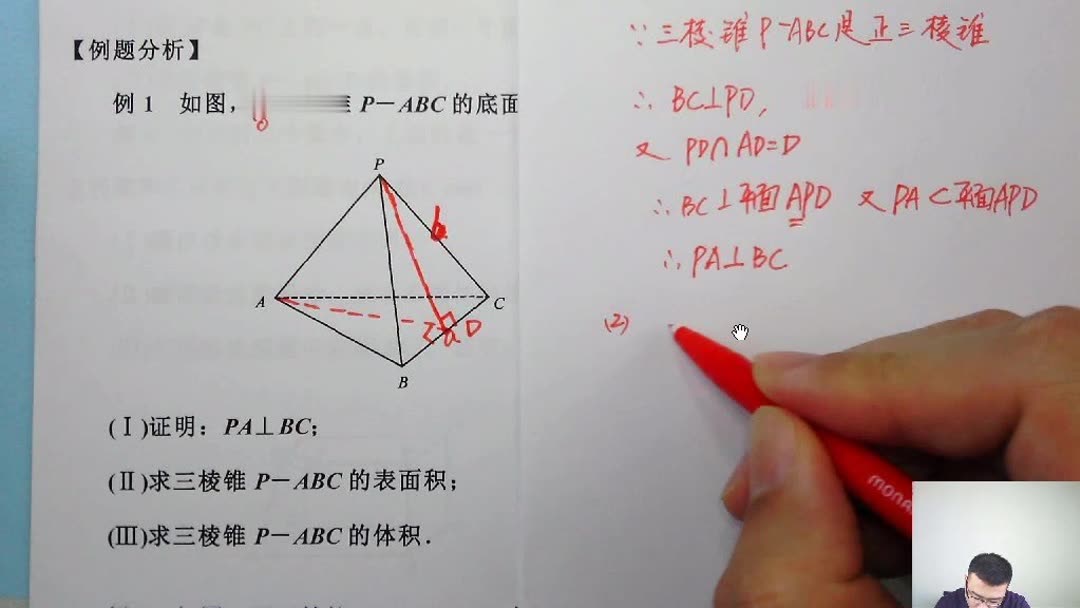 【例题分析】
例1 如图， P－ABC的底面
P
b
A
C
D
a
B
(Ⅰ)证明：PA⊥BC；
(Ⅱ)求三棱锥P－ABC的表面积；
(Ⅲ)求三棱锥P－ABC的体积．
∵三棱锥P-ABC是正三棱锥
∴ BC⊥PD,
又 PD∩AD=D
∴BC⊥平面APD 又PA⊂平面APD
∴PA⊥BC
(2)